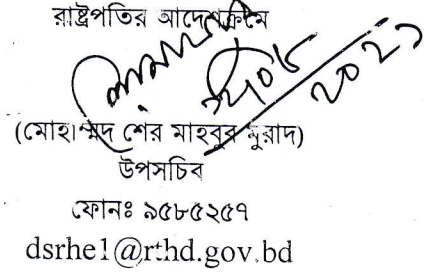 রাষ্ট্রপতির আদেশক্রমে
২০২১
(মোহাম্মদ শের মাহবুব মুরাদ)
উপসচিব
ফোনঃ ৯৫৮৫২৫৭
dsrhe1@rthd.gov.bd